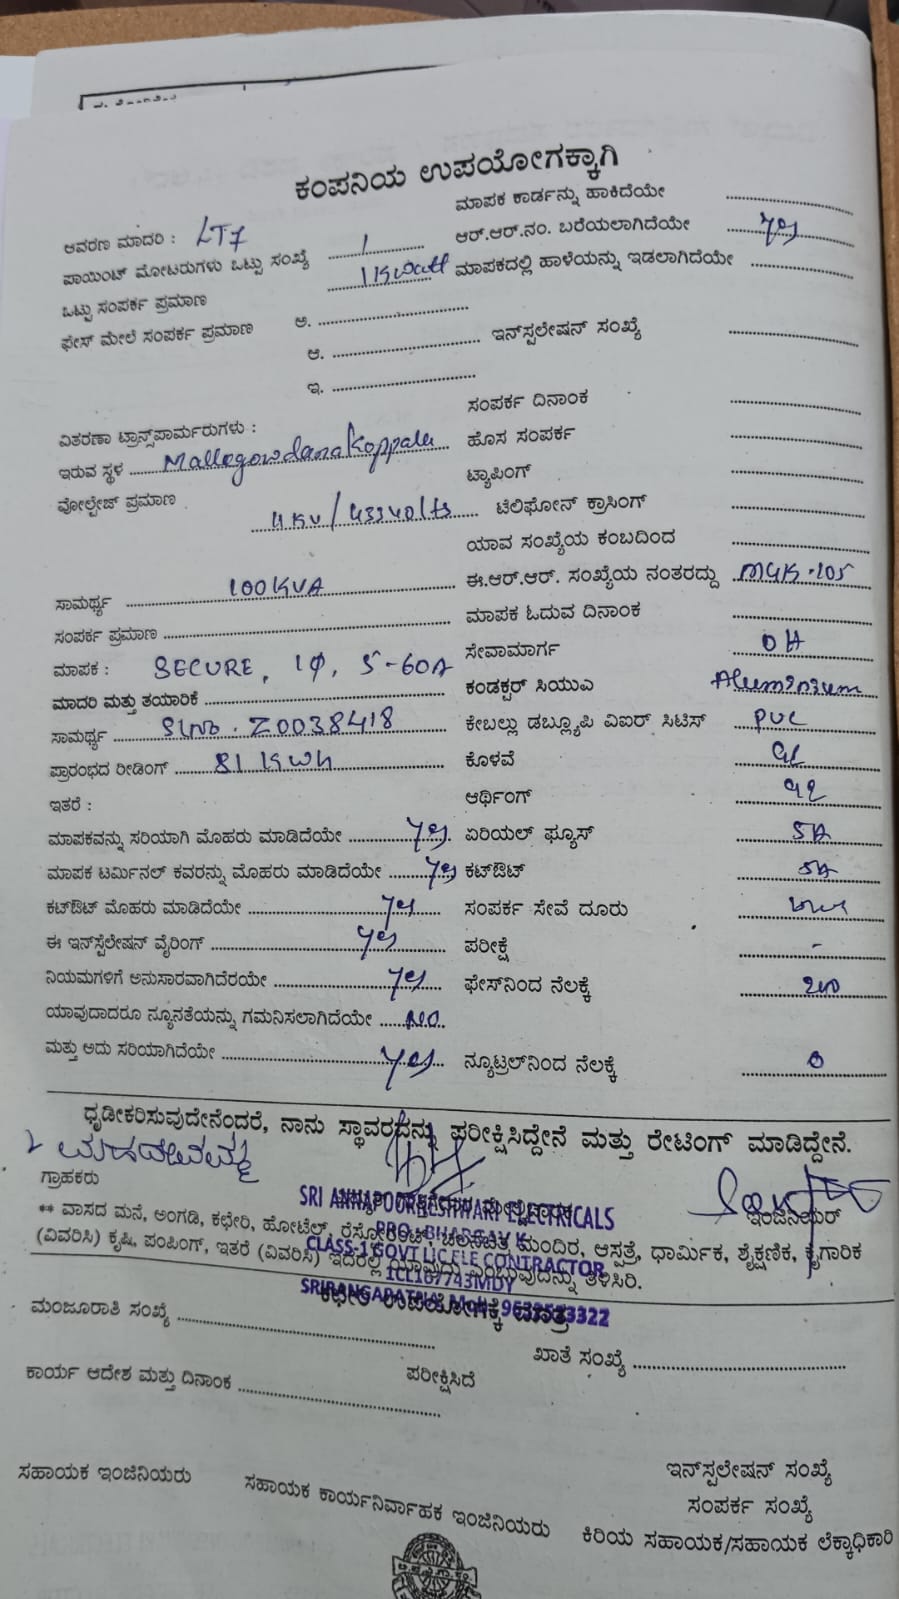 ಕಂಪನಿಯ ಉಪಯೋಗಕ್ಕಾಗಿ
ಆವರಣ ಮಾದರಿ : LT7
ಪಾಯಿಂಟ್ ಮೋಟರುಗಳು ಒಟ್ಟು ಸಂಖ್ಯೆ 1
ಒಟ್ಟು ಸಂಪರ್ಕ ಪ್ರಮಾಣ 1 KWatt
ಫೇಸ್ ಮೇಲೆ ಸಂಪರ್ಕ ಪ್ರಮಾಣ ಅ.
ಆ.
ಇ.
ಮಾಪಕ ಕಾರ್ಡನ್ನು ಹಾಕಿದೆಯೇ
ಆರ್.ಆರ್.ನಂ. ಬರೆಯಲಾಗಿದೆಯೇ yes
ಮಾಪಕದಲ್ಲಿ ಹಾಳೆಯನ್ನು ಇಡಲಾಗಿದೆಯೇ
ಇನ್‌ಸ್ಪಲೇಷನ್ ಸಂಖ್ಯೆ
ವಿತರಣಾ ಟ್ರಾನ್ಸ್‌ಪಾರ್ಮರುಗಳು :
ಇರುವ ಸ್ಥಳ Mallegowdanakoppalu
ವೋಲ್ಟೇಜ್ ಪ್ರಮಾಣ
11KV/433Volts
ಸಾಮರ್ಥ್ಯ 100KVA
ಸಂಪರ್ಕ ಪ್ರಮಾಣ
ಮಾಪಕ : SECURE, 1φ, 5-60A
ಮಾದರಿ ಮತ್ತು ತಯಾರಿಕೆ
ಸಾಮರ್ಥ್ಯ SLNo. Z0038418
ಪ್ರಾರಂಭದ ರೀಡಿಂಗ್ 81 KWh
ಇತರೆ :
ಮಾಪಕವನ್ನು ಸರಿಯಾಗಿ ಮೊಹರು ಮಾಡಿದೆಯೇ yes
ಮಾಪಕ ಟರ್ಮಿನಲ್ ಕವರನ್ನು ಮೊಹರು ಮಾಡಿದೆಯೇ yes
ಕಟ್‌ಔಟ್ ಮೊಹರು ಮಾಡಿದೆಯೇ yes
ಈ ಇನ್‌ಸ್ಟೆಲೇಷನ್ ವೈರಿಂಗ್ yes
ನಿಯಮಗಳಿಗೆ ಅನುಸಾರವಾಗಿದೆರಯೇ yes
ಯಾವುದಾದರೂ ನ್ಯೂನತೆಯನ್ನು ಗಮನಿಸಲಾಗಿದೆಯೇ No
ಮತ್ತು ಅದು ಸರಿಯಾಗಿದೆಯೇ yes
ಸಂಪರ್ಕ ದಿನಾಂಕ
ಹೊಸ ಸಂಪರ್ಕ
ಟ್ಯಾಪಿಂಗ್
ಟೆಲಿಫೋನ್ ಕ್ರಾಸಿಂಗ್
ಯಾವ ಸಂಖ್ಯೆಯ ಕಂಬದಿಂದ
ಈ.ಆರ್.ಆರ್. ಸಂಖ್ಯೆಯ ನಂತರದ್ದು MGK-105
ಮಾಪಕ ಓದುವ ದಿನಾಂಕ
ಸೇವಾಮಾರ್ಗ OH
ಕಂಡಕ್ಟರ್ ಸಿಯುಎ Aluminium
ಕೇಬಲ್ಲು ಡಬ್ಲ್ಯೂಪಿ ವಿಐರ್ ಸಿಟಿಸ್ PVC
ಕೊಳವೆ GI
ಆರ್ಥಿಂಗ್ GI
ಏರಿಯಲ್ ಫ್ಯೂಸ್ 5A
ಕಟ್‌ಔಟ್ 5A
ಸಂಪರ್ಕ ಸೇವೆ ದೂರು
ಪರೀಕ್ಷೆ -
ಫೇಸ್‌ನಿಂದ ನೆಲಕ್ಕೆ
ನ್ಯೂಟ್ರಲ್‌ನಿಂದ ನೆಲಕ್ಕೆ 0
ಧೃಡೀಕರಿಸುವುದೇನೆಂದರೆ, ನಾನು ಸ್ಥಾವರವನ್ನು ಪರೀಕ್ಷಿಸಿದ್ದೇನೆ ಮತ್ತು ರೇಟಿಂಗ್ ಮಾಡಿದ್ದೇನೆ.
ಗ್ರಾಹಕರು
ಇಂಜಿನಿಯರ್
SRI ANNAPOORNESHWARI ELECTRICALS
PRO : BHARGAV K
CLASS-1 GOVT LIC ELE CONTRACTOR
1CL167743MDY
** ವಾಸದ ಮನೆ, ಅಂಗಡಿ, ಕಛೇರಿ, ಹೋಟೆಲ್, ರೆಸ್ಟೋರೆಂಟ್, ಚಲನಚಿತ್ರ ಮಂದಿರ, ಆಸ್ಪತ್ರೆ, ಧಾರ್ಮಿಕ, ಶೈಕ್ಷಣಿಕ, ಕೈಗಾರಿಕ
(ವಿವರಿಸಿ) ಕೃಷಿ, ಪಂಪಿಂಗ್, ಇತರೆ (ವಿವರಿಸಿ) ಇದರಲ್ಲಿ ಯಾವುದು ಎಂಬುವುದನ್ನು ತಿಳಿಸಿರಿ.
ಕಛೇರಿ ಉಪಯೋಗಕ್ಕೆ ಮಾತ್ರ
ಮಂಜೂರಾತಿ ಸಂಖ್ಯೆ
ಖಾತೆ ಸಂಖ್ಯೆ
ಕಾರ್ಯ ಆದೇಶ ಮತ್ತು ದಿನಾಂಕ
ಪರೀಕ್ಷಿಸಿದೆ
ಸಹಾಯಕ ಇಂಜಿನಿಯರು
ಸಹಾಯಕ ಕಾರ್ಯನಿರ್ವಾಹಕ ಇಂಜಿನಿಯರು
ಇನ್‌ಸ್ಪಲೇಷನ್ ಸಂಖ್ಯೆ
ಸಂಪರ್ಕ ಸಂಖ್ಯೆ
ಕಿರಿಯ ಸಹಾಯಕ/ಸಹಾಯಕ ಲೆಕ್ಕಾಧಿಕಾರಿ